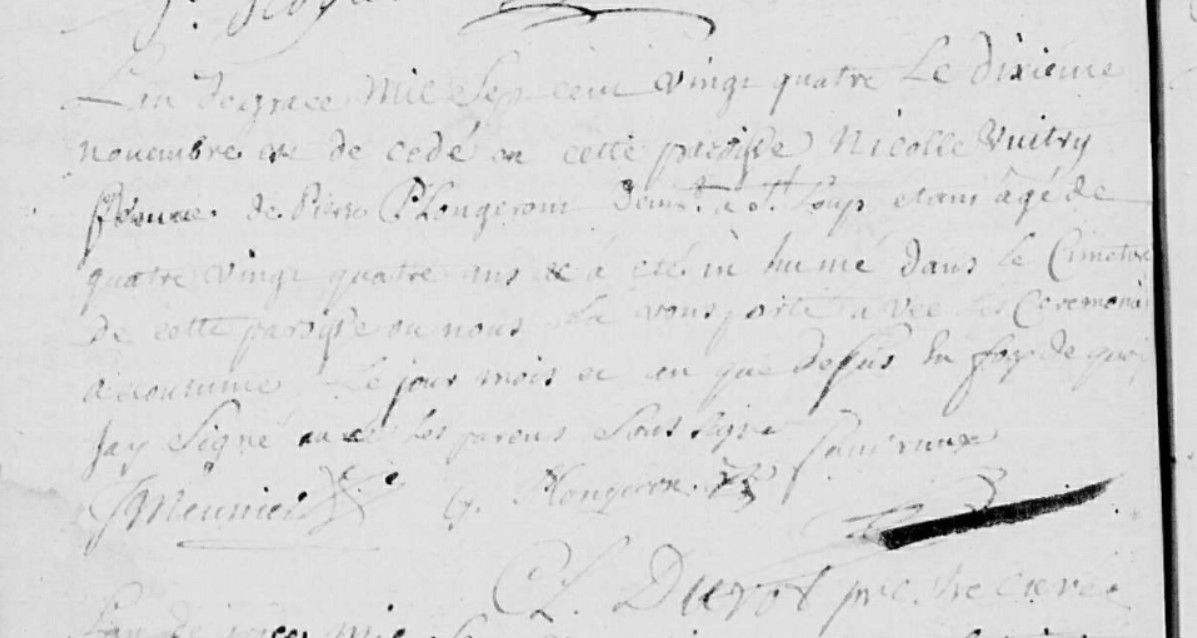 Lan de grace Mil Sept cent vingt quatre Le dixieme
novembre est de cedé en cette paroisse Nicolle Vuitry
femme de Pierre Plongeront demt. a St. Loup etant âgé de
quatre vingt quatre ans & a eté in humé dans le Cimetiere
de cette paroisse ou nous La vons porté a vec les Ceremonie
accoutume Le jour mois et an que dessus En foy de quoi
Jay Signé avec les parens Sous signé
JMeunier Plongeron
CL. Durot prestre curée
Lan de grace mil